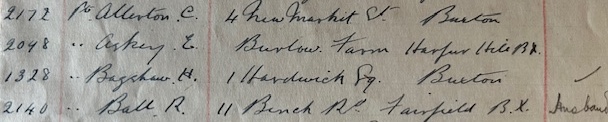 2172 Pte Allerton. C. 4 New Market St. Buxton
2048 " Askey. E. Burlow. Farm Harpur Hill BX.
1328 " Bagshaw. H. 1 Hardwick Sq. Buxton
2140 " Ball. R. 11 Bench Rd. Fairfield B.X.